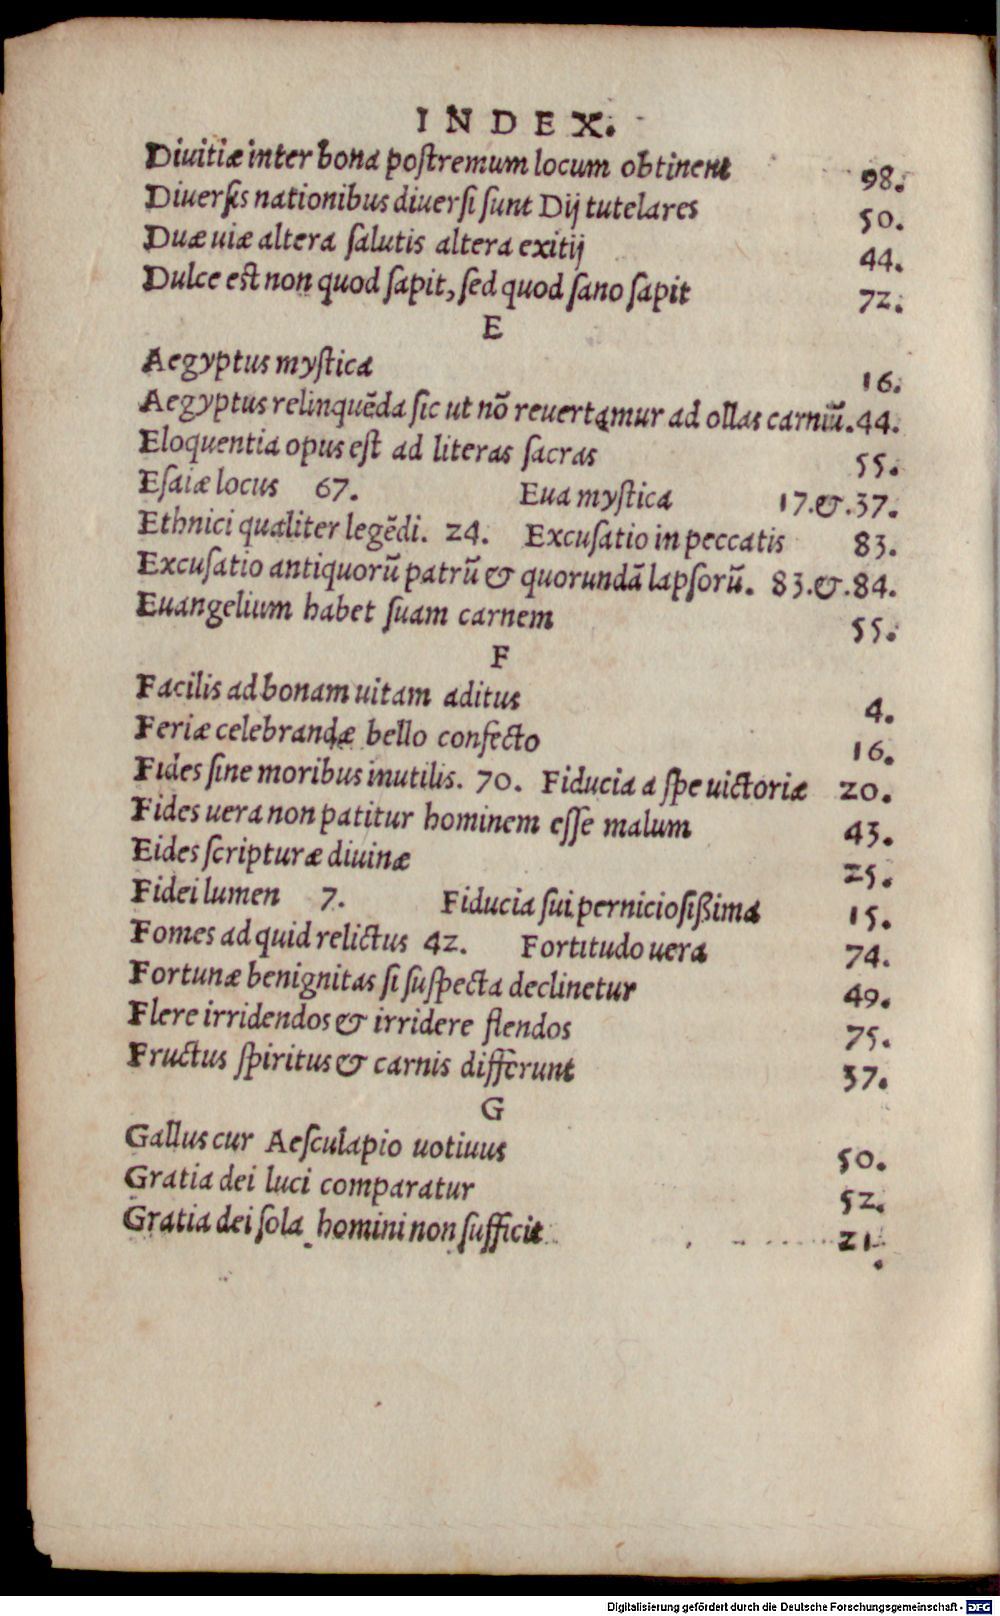 INDEX.
Diuitiæ inter bona poſtremum locum obtinent 98.
Diuerſis nationibus diuerſi ſunt Dij tutelares 50.
Duæ uiæ altera ſalutis altera exitij 44.
Dulce eſt non quod ſapit, ſed quod ſano ſapit 72.
E
Aegyptus myſtica 16.
Aegyptus relinquẽda ſic ut nõ reuertamur ad ollas carniũ. 44.
Eloquentia opus eſt ad literas ſacras 55.
Eſaiæ locus 67. Eua myſtica 17. & .37.
Ethnici qualiter legẽdi. 24. Excuſatio in peccatis 83.
Excuſatio antiquorũ patrũ & quorundã lapſorũ. 83. & .84.
Euangelium habet ſuam carnem 55.
F
Facilis ad bonam uitam aditus 4.
Feriæ celebrandæ bello confecto 16.
Fides ſine moribus inutilis. 70. Fiducia a ſpe uictoriæ 20.
Fides uera non patitur hominem eſſe malum 43.
Eides ſcripturæ diuinæ 25.
Fidei lumen 7. Fiducia ſui pernicioſißima 15.
Fomes ad quid relictus 42. Fortitudo uera 74.
Fortunæ benignitas ſi ſuſpecta declinetur 49.
Flere irridendos & irridere flendos 75.
Fructus ſpiritus & carnis differunt 37.
G
Gallus cur Aeſculapio uotiuus 50.
Gratia dei luci comparatur 52.
Gratia dei ſola homini non ſufficit 21.
Digitalisierung gefördert durch die Deutsche Forschungsgemeinschaft - DFG